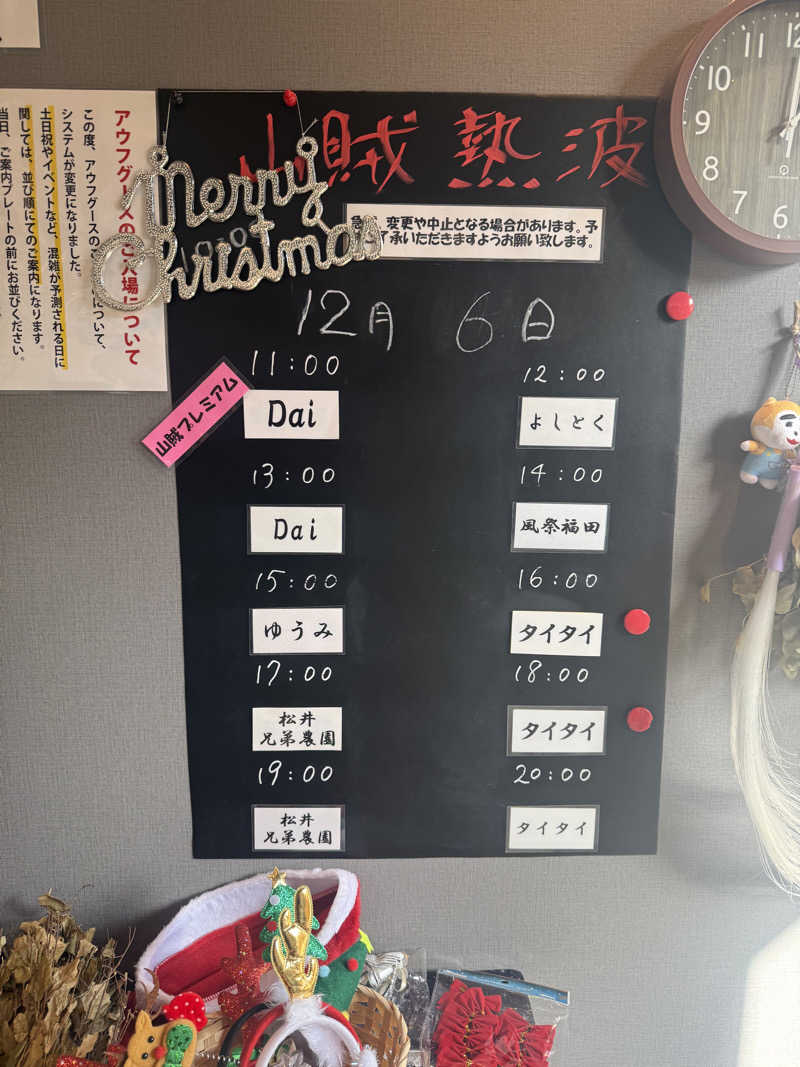 アウフグースのご入場について
この度、アウフグースのご
について、
システムが変更になりました。
土日祝やイベントなど、混雑が予測される日に
関しては、並び順にてのご案内になります。
当日、ご案内プレートの前にお並びください。
山賊熱波
Merry
Christmas
変更や中止となる場合があります。予
了承いただきますようお願い致します。
12月 6日
山賊プレミアム
11:00
Dai
12:00
よしとく
13:00
Dai
14:00
風祭福田
15:00
ゆうみ
16:00
タイタイ
17:00
松井
兄弟農園
18:00
タイタイ
19:00
松井
兄弟農園
20:00
タイタイ
11 12
10
9
8
7 6